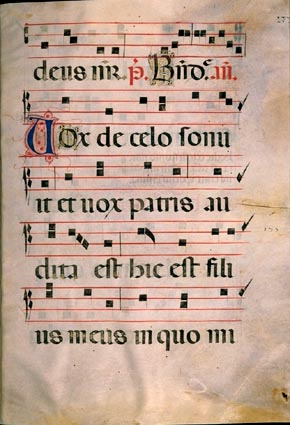 deus nr̄. p̄. Bn̄dc̄. ān.
Uox de celo sonu
it et uox patris au
dita est hic est fili
us meus in quo mi